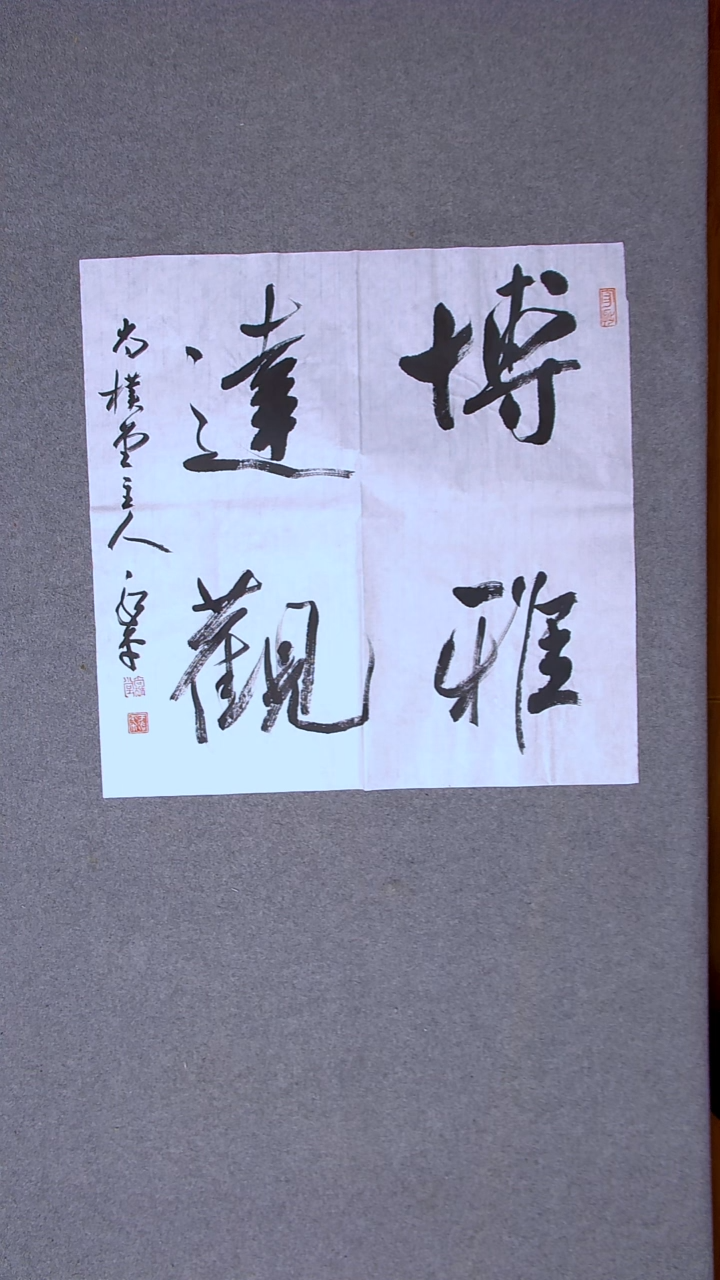 博雅
達觀
尚樸堂主人